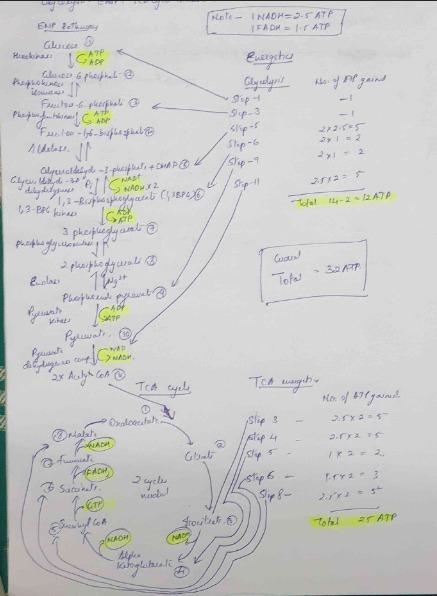 Note - 1 NADH = 2.5 ATP
1 FADH = 1.5 ATP
EMP Pathway
Glucose ①
Hexokinase
ATP
ADP
Glucose 6 phosphate ②
Phosphohexose
isomerase
Fructose-6-phosphate ③
Phosphofructokinase
ATP
ADP
Fructose-1,6-bisphosphate ④
Aldolase
Glyceraldehyde-3-phosphate + DHAP ⑤
Glyceraldehyde-3P
dehydrogenase
Pi
NAD+
NADH x 2
1,3-Bisphosphoglycerate (1,3BPG) ⑥
1,3-BPG
kinase
ADP
ATP
3 phosphoglycerate ⑦
phosphoglyceromutase
2 phosphoglycerate ⑧
Enolase
Mg2+
Phosphoenol pyruvate ⑨
Pyruvate
kinase
ADP
ATP
Pyruvate ⑩
Pyruvate
dehydrogenase comp
NAD
NADH
2x Acetyl CoA
Energetics
Glycolysis
No. of ATP gained
Step-1 -1
Step-3 -1
Step-5 2x2.5=5
Step-6 2x1=2
Step-9 2x1=2
Step-11 2.5x2=5
Total 14-2=12ATP
Total = 32ATP
TCA cycle
①
Oxaloacetate
Citrate ②
Isocitrate ③
NADH
Alpha
Ketoglutarate ④
NADH
Succinyl CoA
GTP
Succinate
FADH2
Fumarate
NADH
⑧ Malate
2 cycle
needed
TCA energetics
No. of ATP gained
Step 3 - 2.5x2=5
Step 4 - 2.5x2=5
Step 5 - 1x2=2
Step 6 - 1.5x2=3
Step 8 - 2.5x2=5
Total 25 ATP